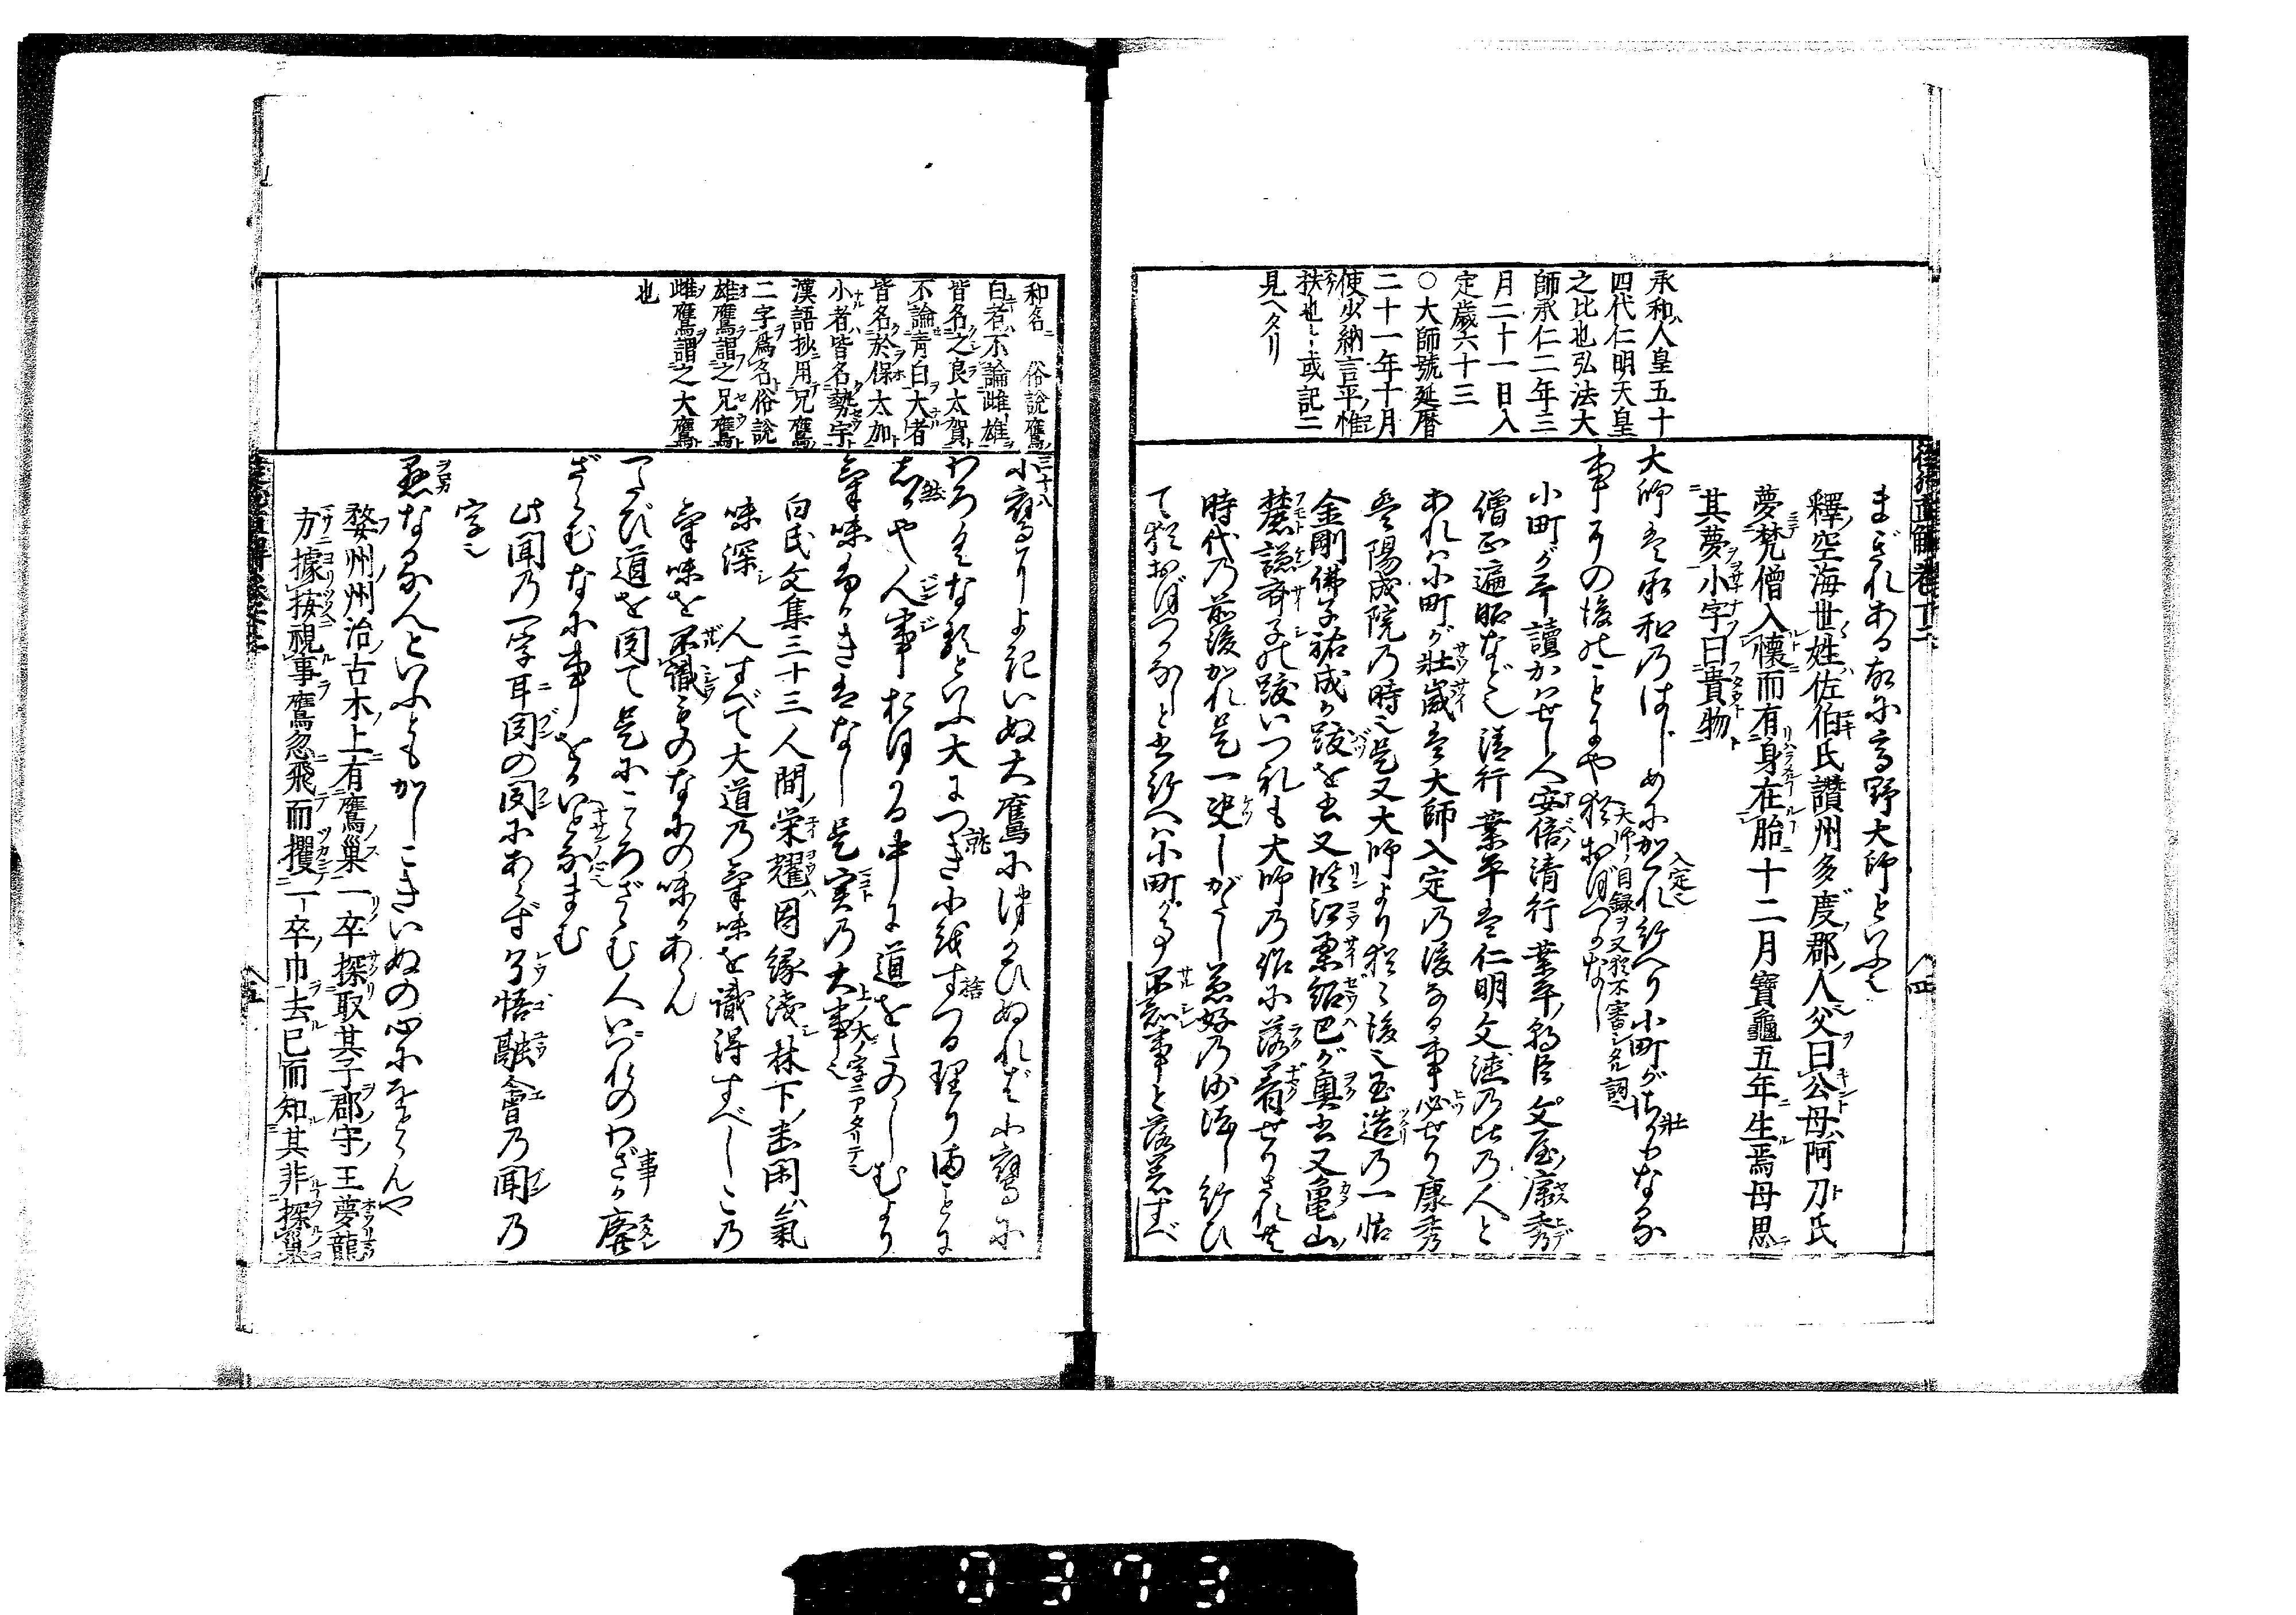 承和人皇五十
四代仁明天皇
之比也弘法大
師承仁二年三
月二十一日入
定歳六十三
○大師號延暦
二十一年十月
使少納言平惟
扶也云云或記ニ
見ヘタリ
徒然直解 巻十二
まぎれある故に高野大師といふ也
釋空海世姓佐伯氏讃州多度郡人父曰公母阿刀氏
夢梵僧入懐而有身在胎十二月寶龜五年生焉母思
其夢小字曰貴物
大師は承和のはじめにかくれ給へり小町がさかりなる
事その後のことにや猶おぼつかなし
小町が哥讀かはせし人安倍清行業平朝臣文屋康秀
僧正遍昭など也清行業平は仁明文徳の比の人と
あれば小町が壮歳は大師入定の後なる事必せり康秀
は陽成院の時也是又大師より猶々後也玉造の一帖
金剛佛子祐成が跋を
麓謙斎子の跋いつれも大師の作に落着せりされ共
時代の前後かれ是一决しがたし兼好の
て猶おぼつかなしと書給へば小町が事不知事と落着すべ
八四
和名 俗説鷹
白者不論雌雄
皆名之良太賀
不論青白大者
皆名於保太加
小者皆名勢宇
漢語抄用兄鷹
二字爲名俗説
雄鷹謂之兄鷹
雌鷹謂之大鷹
也
三十八
小鷹によきいぬ大鷹につかひぬれば小鷹に
わろくなるといふ大につき小をすつる理りまことに
しかや人事おほかる中に道をたのしむより
氣味ふかきはなし是実の大事也
白氏文集三十三人間榮耀因縁淺林下幽閑氣
味深 人すべて大道の氣味を識得すべしこの
氣味を不識ものなにの味かあらん
一たび道を聞て是にこころざさむ人いづれのわざか廃
ざらむなに事をかいとなまむ
此聞の字耳聞の聞にあらず了悟融會の聞の
字也
愚なる人といふともかしこきいぬの心におとらんや
婺州州治古木上有鷹巣一卒探取其子郡守王夢龍
方據按視事鷹忽飛而攫一卒巾去已而知其非探巣
八五
0373